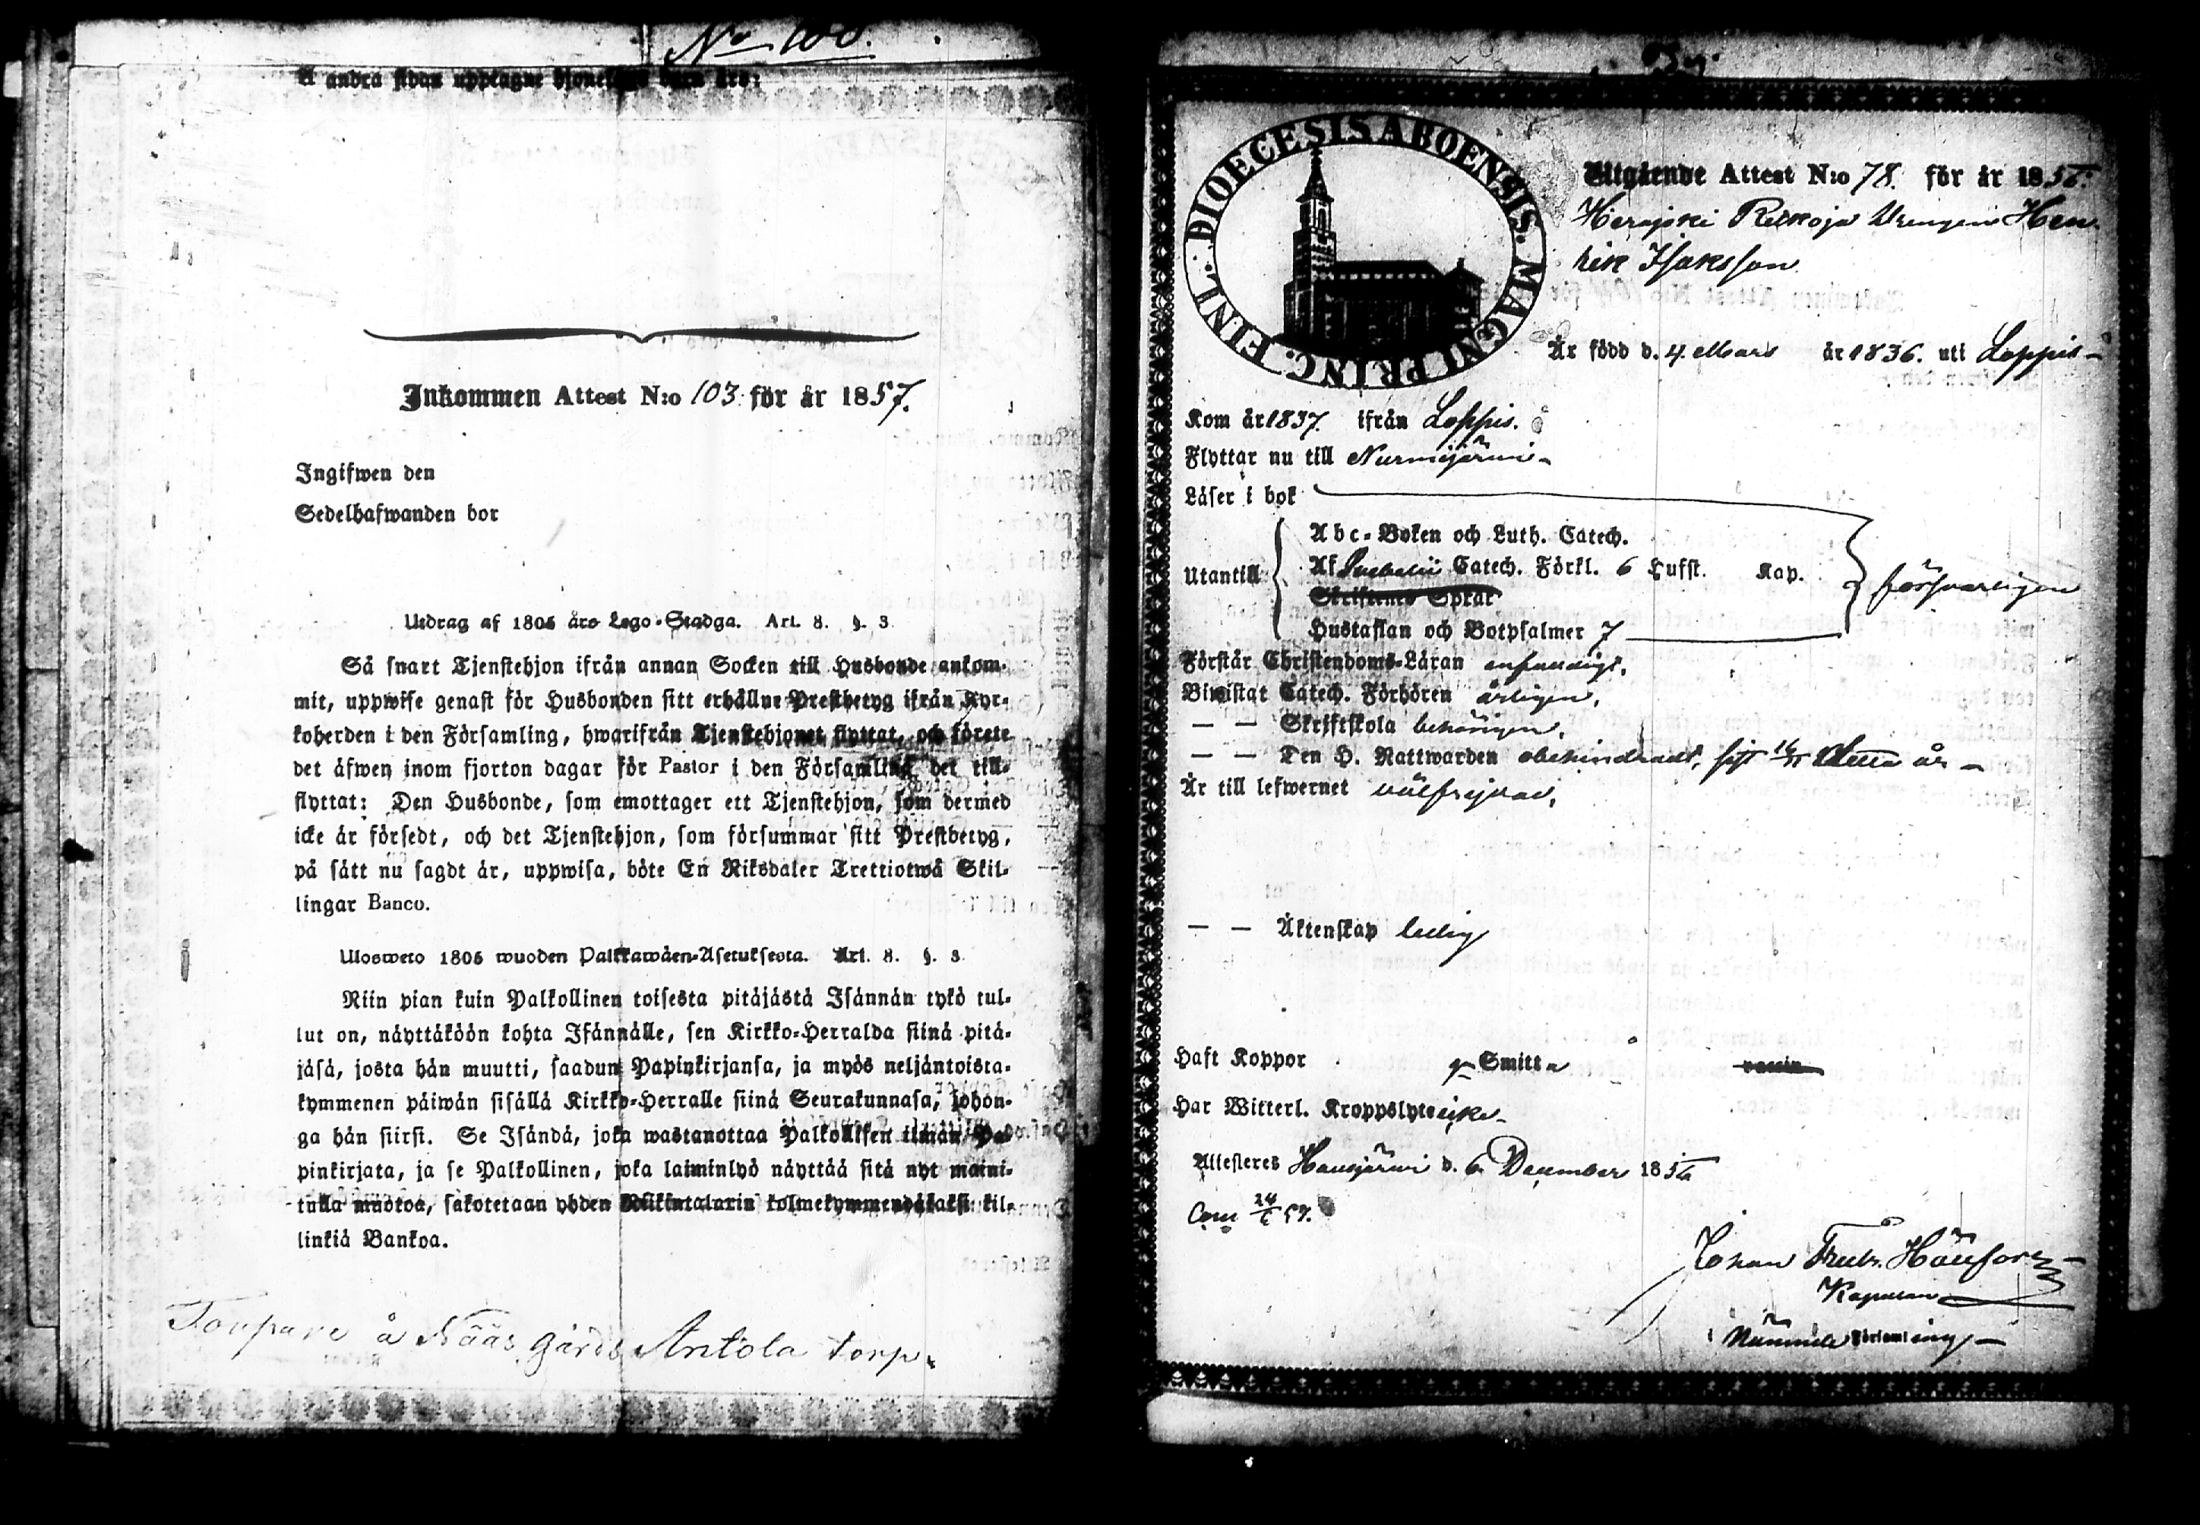 No 100.
Å andra sidan upptagne hjonelags barn äro:
Inkommen Attest N:o 103 för år 1857.
Ingifwen den
Sedelhafwanden bor
Utdrag af 1805 års Lego-Stadga. Art. 8. §. 3
Så snart Tjenstehjon ifrån annan Socken till Husbonde ankom-
mit, uppwise genast för Husbonden sitt erhållne Prestbetyg ifrån Kyr-
koherden i den Församling, hwarifrån Tjenstehjonet flyttat, och förete
det äfwen inom fjorton dagar för Pastor i den Församling det till-
flyttat: Den Husbonde, som emottager ett Tjenstehjon, som dermed
icke är försedt, och det Tjenstehjon, som försummar sitt Prestbetyg,
på sätt nu sagdt är, uppwisa, böte En Riksdaler Trettiotwå Skil-
lingar Banco.
Ulosweto 1805 wuoden Palkkawäen-Asetuksesta. Art. 8. §. 3
Niin pian kuin Palkollinen toisesta pitäjästä Isännän tykö tul-
lut on, näyttäköön kohta Isännälle, sen Kirkko-Herralda siinä pitä-
jäsä, josta hän muutti, saadun Papinkirjansa, ja myös neljäntoista-
kymmenen päiwän sisällä Kirkko-Herralle siinä Seurakunnasa, johon-
ga hän siirsi. Se Isändä, joka wastanottaa Palkollisen ilman Pa-
pinkirjata, ja se Palkollinen, joka laiminlyö näyttää sitä nyt maini-
tulla muotoa, sakotetaan yhden Riikintalarin kolmekymmendäkaksi kil-
linkiä Bankoa.
Torpare å Nääs gårds Antola torp.
DIOECESIS ABOENSIS. MAGNI PRINC. FINL.
Utgående Attest N:o 78. för år 1856.
Drengen Hen
rik Isaksson
Är född d. 4 Mars år 1836. uti Loppis
Kom år 1837. ifrån Loppis.
Flyttar nu till Nurmijärvi
Läser i bok
Abc-Boken och Luth. Catech.
Utantill Af Svebelii Catech. Förkl. 6 Hufst. Kap. försvarligen
Skriftenes Språk
Hustaflan och Botpsalmer 7
Förstår Christendoms-Läran enfaldigt.
Biwistat Catech. Förhören årligen.
— — Skriftskola behörigen.
— — Den H. Nattwarden obehindradt, sist detta år
Är till lefwernet välfrejdad.
— — Äktenskap ledig
Haft Koppor Smitt vaccin
Har Witterl. Kroppslyte icke
Attesteras Hausjärvi d. 6 December 1856
57.
Johan Fredr.
Kapellan
i Församling